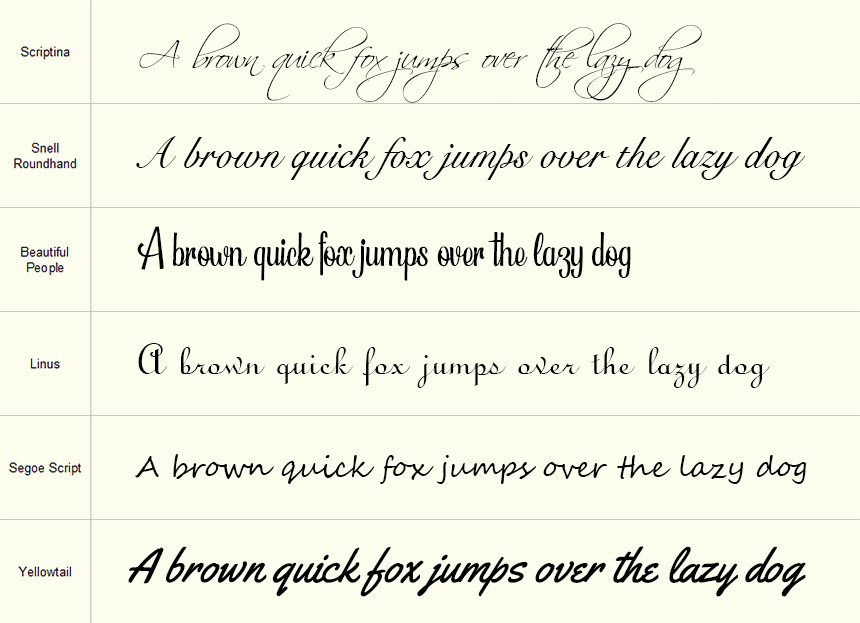 Scriptina
A brown quick fox jumps over the lazy dog
Snell
Roundhand
A brown quick fox jumps over the lazy dog
Beautiful
People
A brown quick fox jumps over the lazy dog
Linus
A brown quick fox jumps over the lazy dog
Segoe Script
A brown quick fox jumps over the lazy dog
Yellowtail
A brown quick fox jumps over the lazy dog